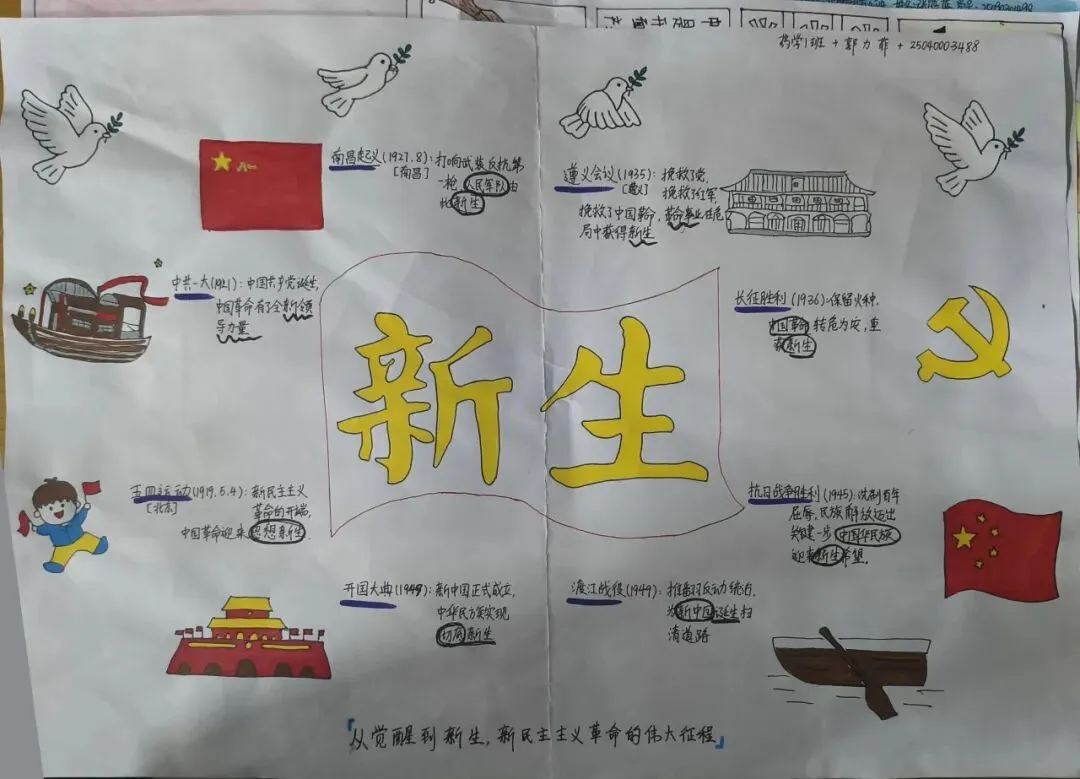 药学1班 + 郭力菲 + 25040003488
南昌起义(1927.8): 打响武装反抗第
[南昌]
一枪,人民军队由
此新生
遵义会议(1935): 挽救了党,
[遵义]
挽救了红军,
挽救了中国革命,革命事业在危
局中获得新生
中共一大(1921): 中国共产党诞生,
中国革命有了全新领
导力量
长征胜利(1936): 保留火种,
中国革命转危为安,重
获新生
新生
五四运动(1919.5.4): 新民主主义
[北京]
革命的开端,
中国革命迎来思想新生.
抗日战争胜利(1945): 洗刷百年
屈辱,民族解放迈出
关键一步 中国华民族
迎来新生希望.
开国大典(1949): 新中国正式成立,
中华民族实现
彻底新生
渡江战役(1949): 推翻反动统治,
为新中国诞生扫
清道路
「从觉醒到新生,新民主主义革命的伟大征程」